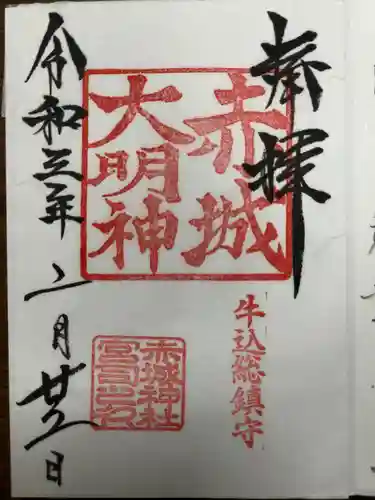 奉拝
赤城
大明神
牛込総鎮守
赤城神社
宮司之印
令和三年二月廿五日